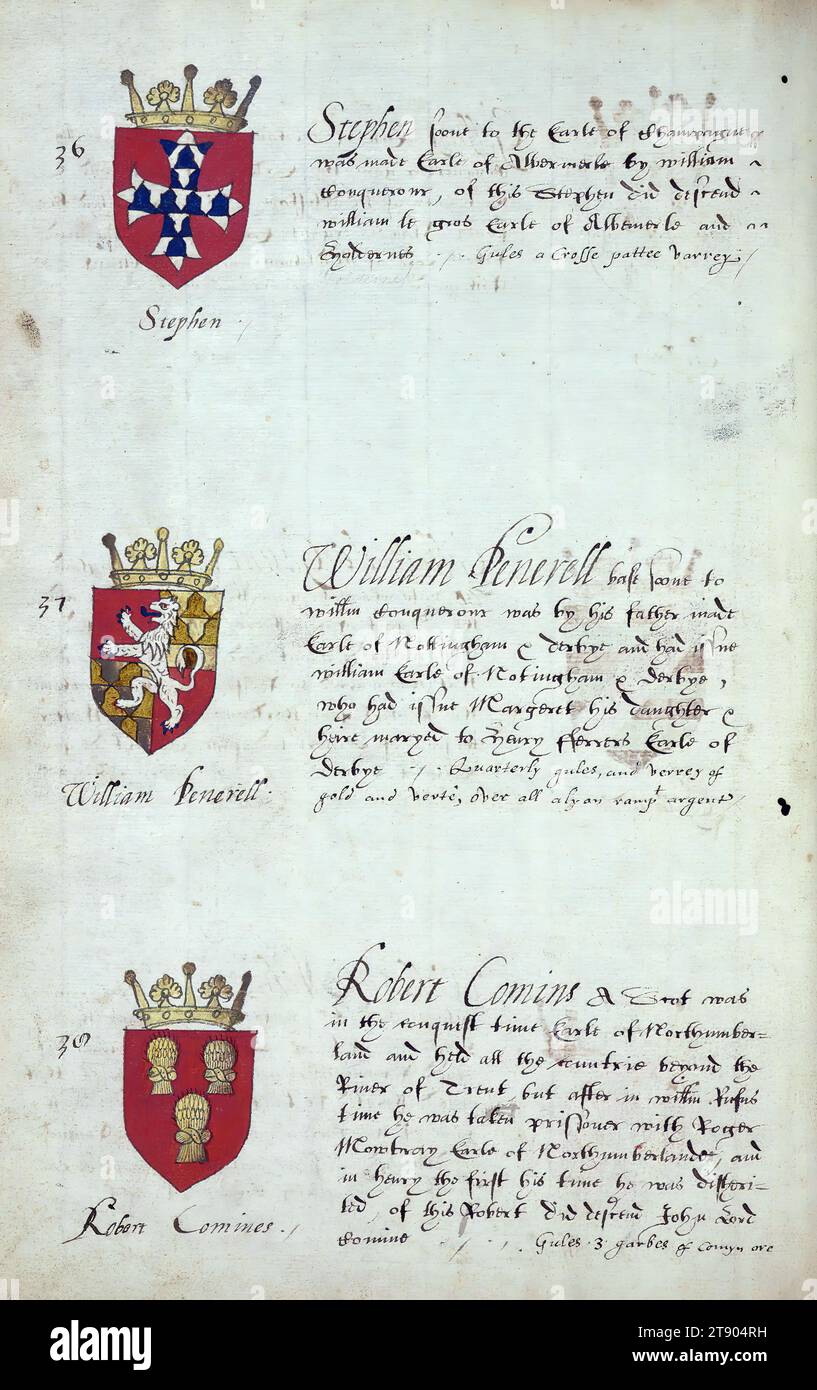 36
Stephen sone to the Earle of Champaigne
was made Earle of Albermerle by william
Conquerour, of this Stephen did descend
william le gros Earle of Albemerle and
Holdernes Gules a Crosse pattee varrey
Stephen
37
William Peverell bast sone to
willm Conquerour was by his father made
Earle of Nottingham & derbye and had issue
william Earle of Notingham & derbye,
who had issue Margeret his daughter &
heire maryed to Henry fferrers Earle of
derbye Quarterly gules, and verrey of
gold and verte, over all a lyon rampt argent
William Peverell
38
Robert Comins A Scot was
in the conquest time Earle of Northumber-
land and held all the countrie beyond the
River of Trent, but after in willm Rufus
time he was taken prissoner with Roger
Mowbray Earle of Northumberlande, and
in henry the first his time he was disheri-
ted, of this Robert did descend John Lord
Comine Gules 3 garbes of Comyn ore
Robert Comines
alamy
Image ID: 2T904RH
www.alamy.com